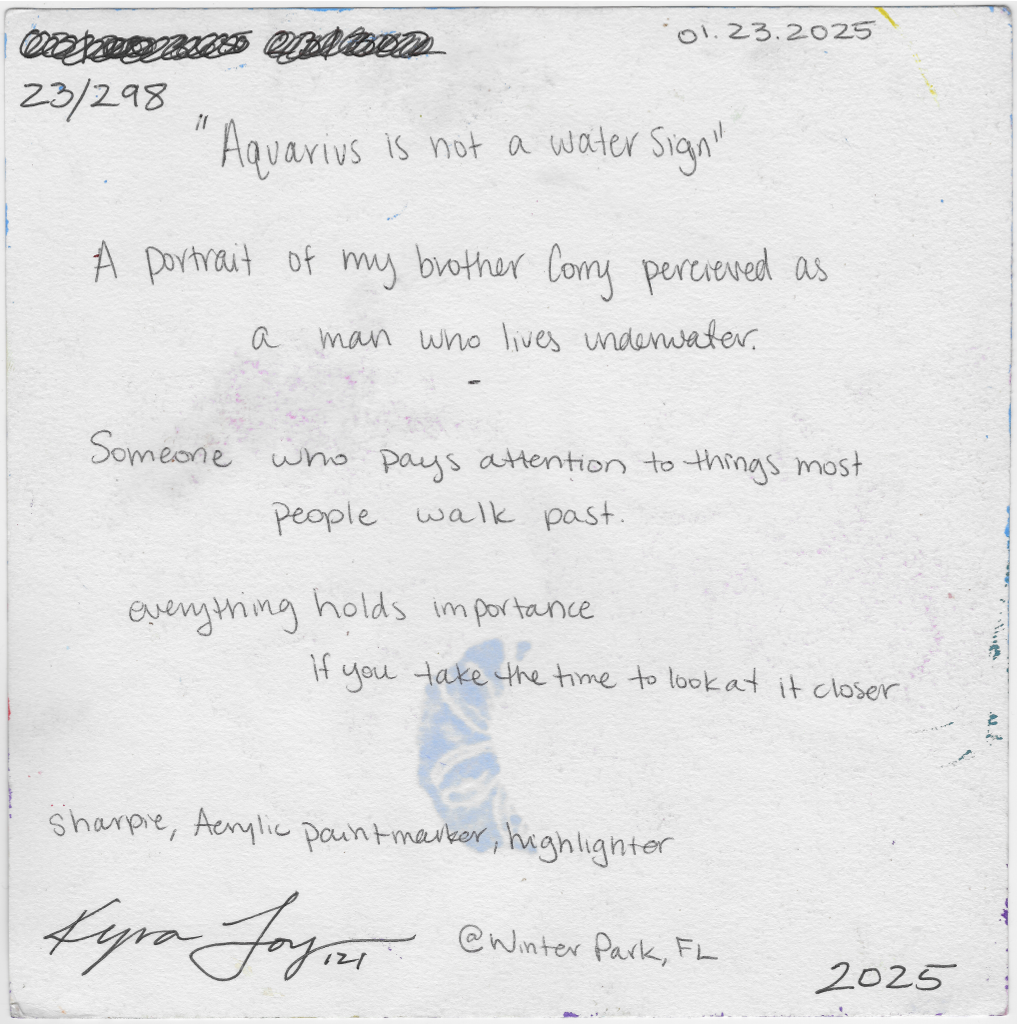 01.23.2025
23/298
"Aquarius is not a water sign"
A portrait of my brother Corry percieved as
a man who lives underwater.
-
Someone who pays attention to things most
people walk past.
everything holds importance
If you take the time to look at it closer
Sharpie, Acrylic paintmarker, highlighter
Kyra Joy 121
@Winter Park, FL
2025